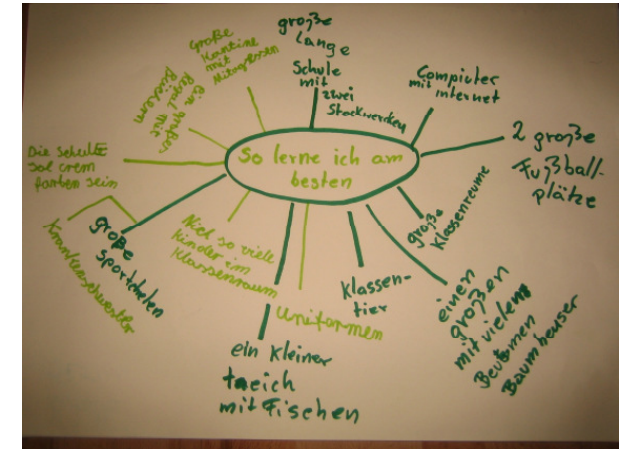 So lerne ich am
besten
große
lange
Schule
mit
zwei
Stockwerken
Compiuter
mit internet
2 große
Fußball-
plätze
große
Klassenreume
einen
großen
mit vielen
Beutmen
Baumheuser
Klassen-
tier
Uniformen
ein kleiner
teich
mit Fischen
Nicht so viele
kinder im
Klassenraum
große
sportcheten
Krankenschwester
Die Schule
sol crem
farben sein
ein großes
Regal mit
Büchern
Große
Kantine
mit
Mitagessen